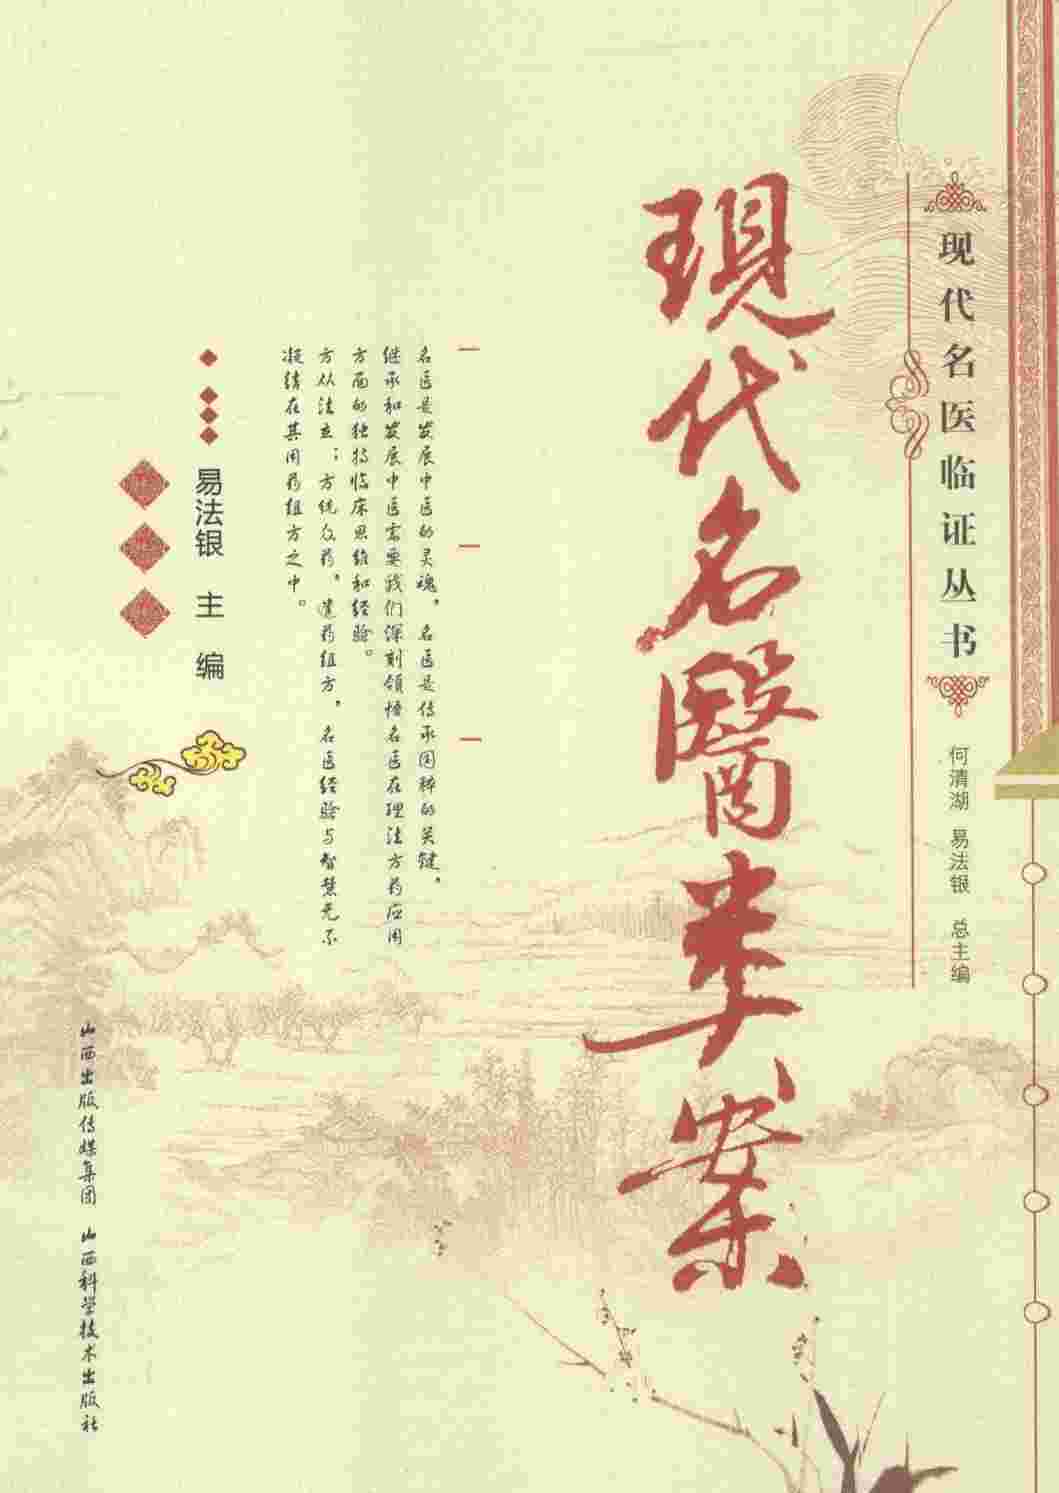 现代名医临证丛书
何清湖 易法银 总主编
現代名醫类案
名医是发展中医的灵魂，名医是传承国粹的关键，
继承和发展中医需要我们深刻领悟名医在理法方药应用
方面的独特临床思维和经验。
方从法立；方统众药，遣药组方，名医经验与智慧无不
凝结在其用药组方之中。
易法银 主 编
山西出版传媒集团 山西科学技术出版社